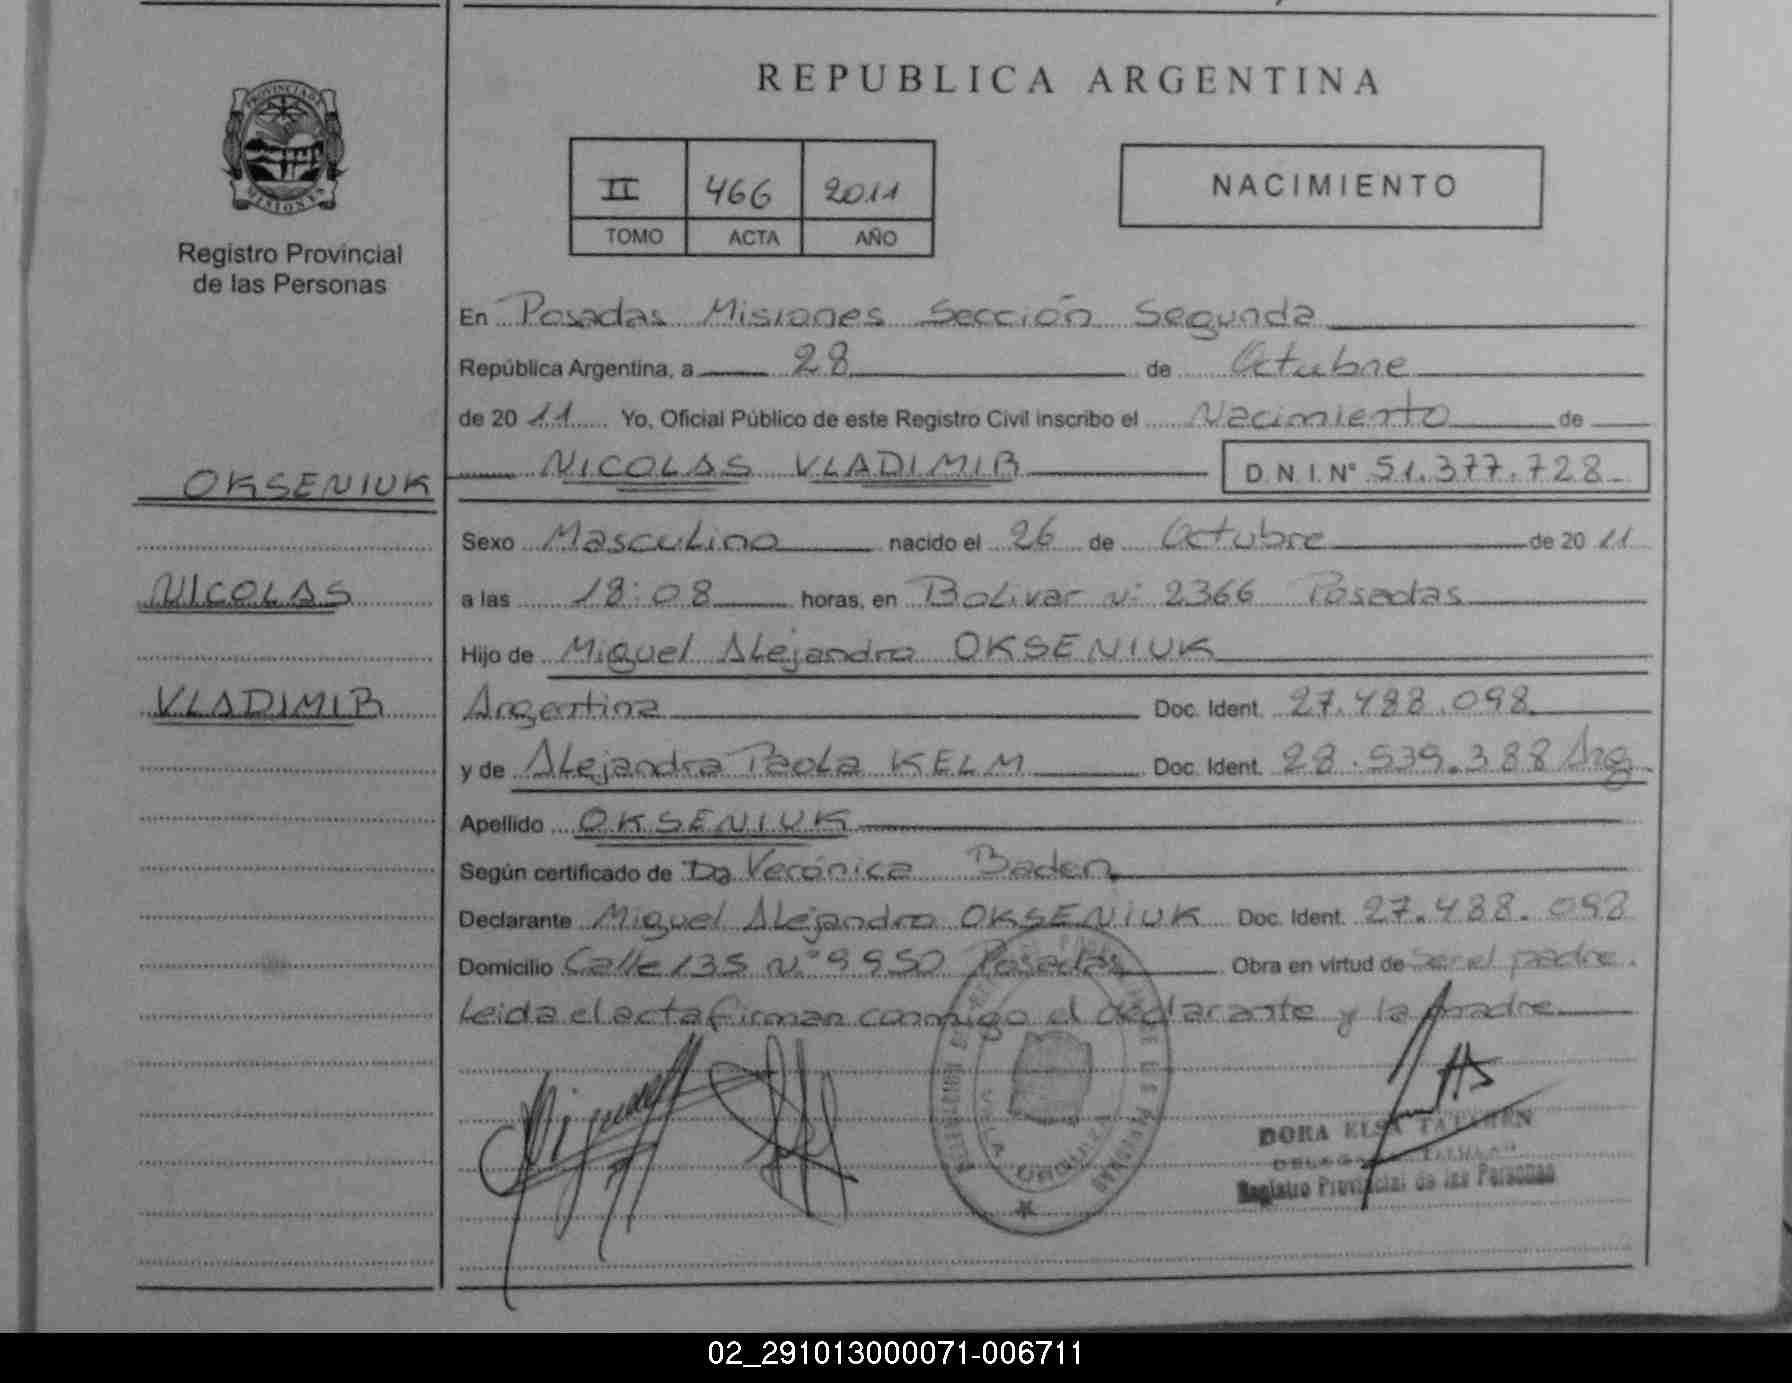 PROVINCIA DE
MISIONES
Registro Provincial
de las Personas
OKSENIUK
NICOLAS
VLADIMIR
REPUBLICA ARGENTINA
II 466 2011
TOMO ACTA AÑO
NACIMIENTO
En Posadas Misiones Sección Segunda
República Argentina, a 28 de Octubre
de 2011 Yo, Oficial Público de este Registro Civil inscribo el Nacimiento de
NICOLAS VLADIMIR D.N.I.Nº 51.377.728
Sexo Masculino nacido el 26 de Octubre de 2011
a las 18:08 horas, en Bolivar Nº 2366 Posadas
Hijo de Miguel Alejandro OKSENIUK
Argentina Doc. Ident. 27.488.098
y de Alejandra Paola KELM Doc. Ident. 28.539.388 Arg
Apellido OKSENIUK
Según certificado de Dª Verónica Baden
Declarante Miguel Alejandro OKSENIUK Doc. Ident. 27.488.098
Domicilio Calle 135 Nº 9950 Posadas Obra en virtud de ser el padre.
Leida el acta firman conmigo el declarante y la madre
DORA ELSA
Registro Provincial de las Personas
02_291013000071-006711